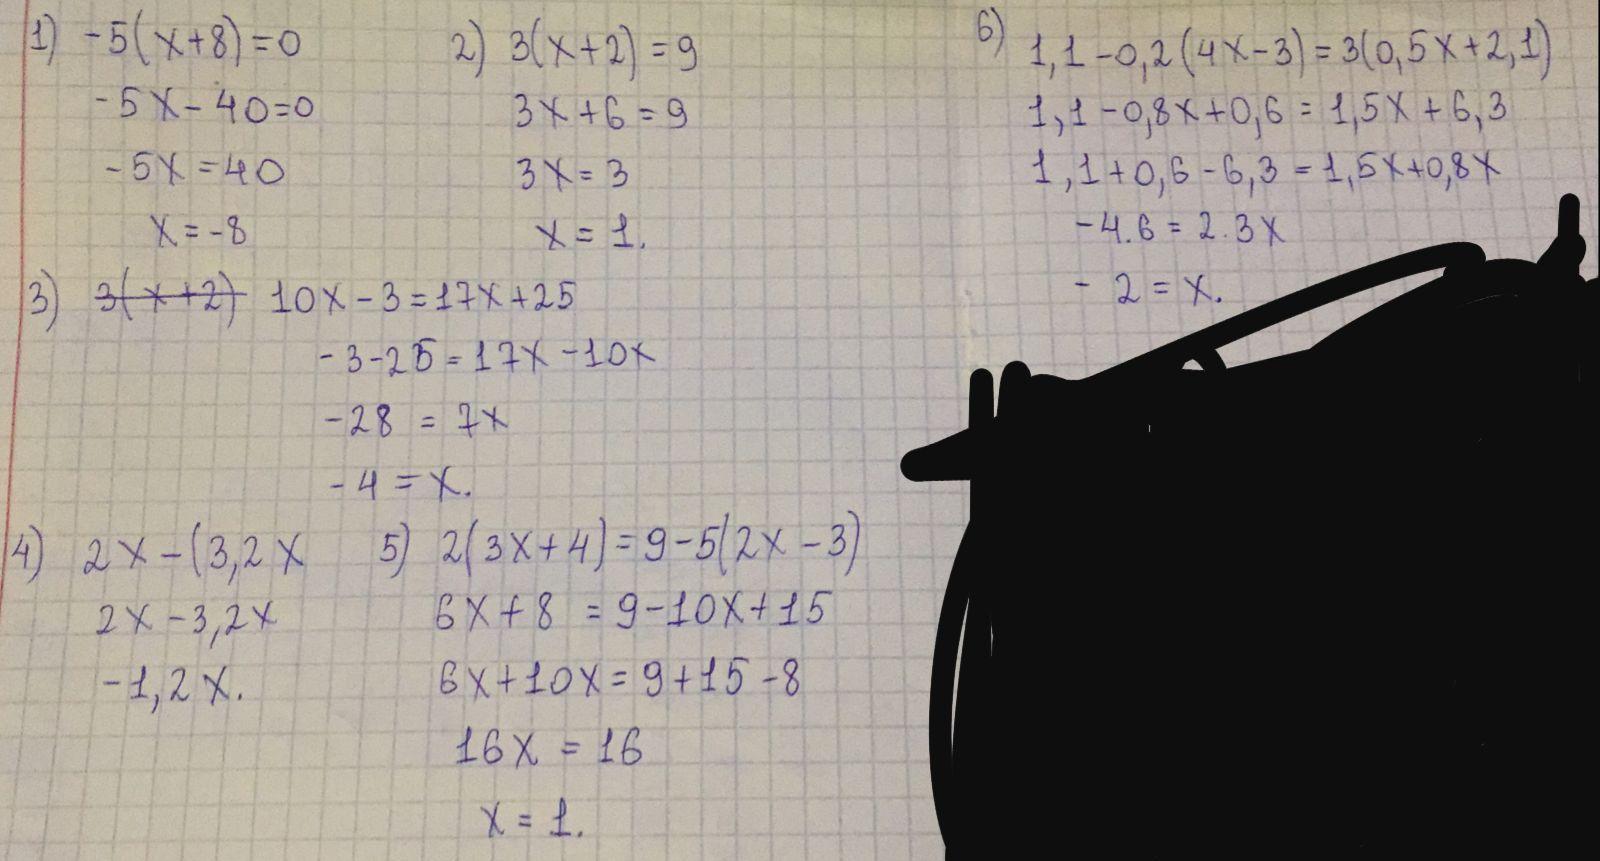 1) -5(x+8)=0
-5x-40=0
-5x=40
x=-8
2) 3(x+2)=9
3x+6=9
3x=3
x=1.
3) 3(x+2) 10x-3=17x+25
-3-25=17x-10x
-28=7x
-4=x.
4) 2x-(3,2x
2x-3,2x
-1,2x.
5) 2(3x+4)=9-5(2x-3)
6x+8=9-10x+15
6x+10x=9+15-8
16x=16
x=1.
6) 1,1-0,2(4x-3)=3(0,5x+2,1)
1,1-0,8x+0,6=1,5x+6,3
1,1+0,6-6,3=1,5x+0,8x
-4.6=2.3x
-2=x.